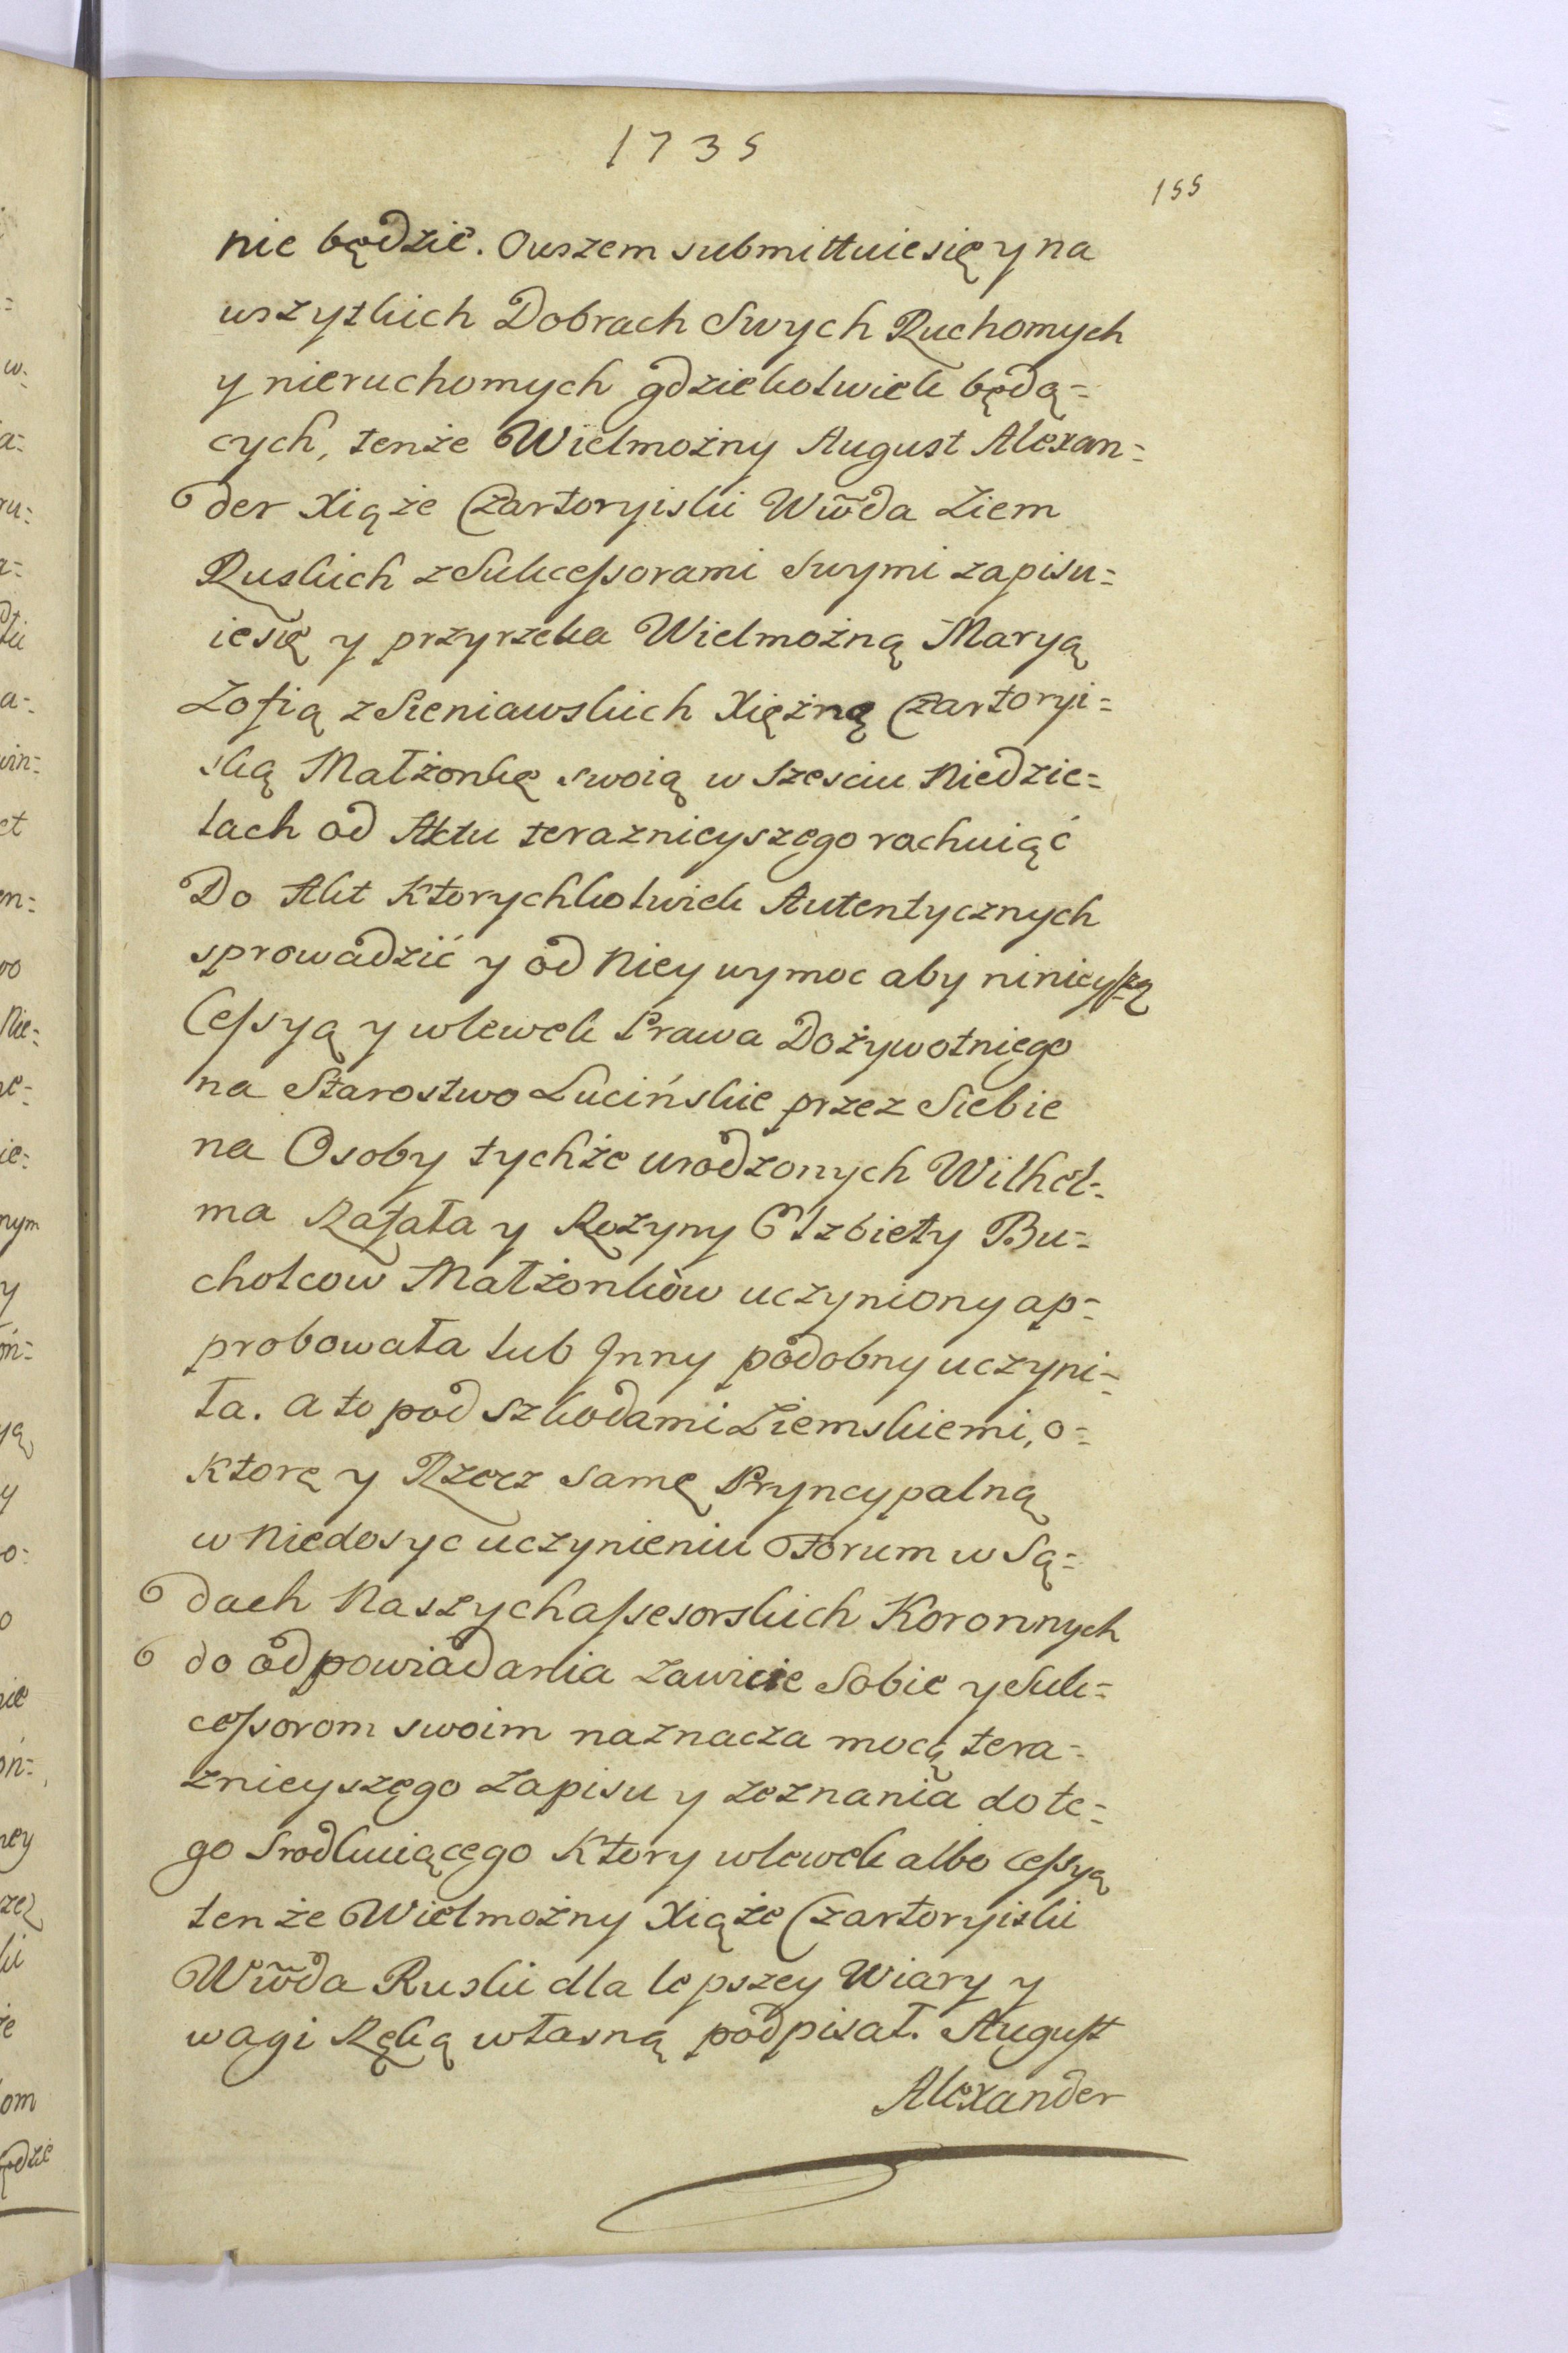 1735
155
nie będzie. Owszem submittuie się y na
wszytkich Dobrach Swych Ruchomych
y nieruchomych gdziekolwiek będą=
cych, tenże Wielmożny August Alexan=
der Xiąże Czartoryiski Ww̃da Ziem
Ruskich z Sukcessorami Swymi zapisu=
ie się y przyrzeka Wielmożną Maryą
Zofią z Sieniawskich Xiężną Czartoryi=
ską Małżonkę swoią w Szesciu Niedzie=
lach od Aktu teraznieyszego rachuiąć
Do Akt Ktorychkolwiek Autentycznych
sprowadzić y od Niey wymoc aby ninieyszą
Cessyą y wlewek Prawa Dożywotniego
na Starostwo Lucińskie przez Siebie
na Osoby tychże urodzonych Wilhel=
ma Rafała y Rozyny Elzbiety Bu=
cholcow Małżonków uczyniony ap=
probowała lub Inny podobny uczyni=
ła. a to pod szkodami Ziemskiemi, o=
Ktorę y Rzecz Samę Pryncypalną
w Niedosyc uczynieniu Forum w Są=
dach Naszych assesorskich Koronnych
do odpowiadania zawicie Sobie y Suk=
cessorom swoim naznacza mocą tera=
znieyszego Zapisu y zeznania do te=
go Srodkuiącego Ktory wlewek albo cessyą
tenże Wielmożny Xiąże Czartoryiski
Ww̃da Ruski dla lepszey Wiary y
wagi Ręką własną podpisał. August
Alexander